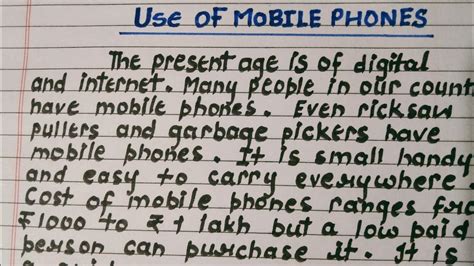 USE OF MOBILE PHONES
The present age is of digital
and internet. Many people in our count
have mobile phones. Even ricksaw
pullers and garbage pickers have
mobile phones. It is small handy
and easy to carry everywhere
Cost of mobile phones ranges fro
₹1000 to ₹1 lakh but a low paid
person can purchase it. It is